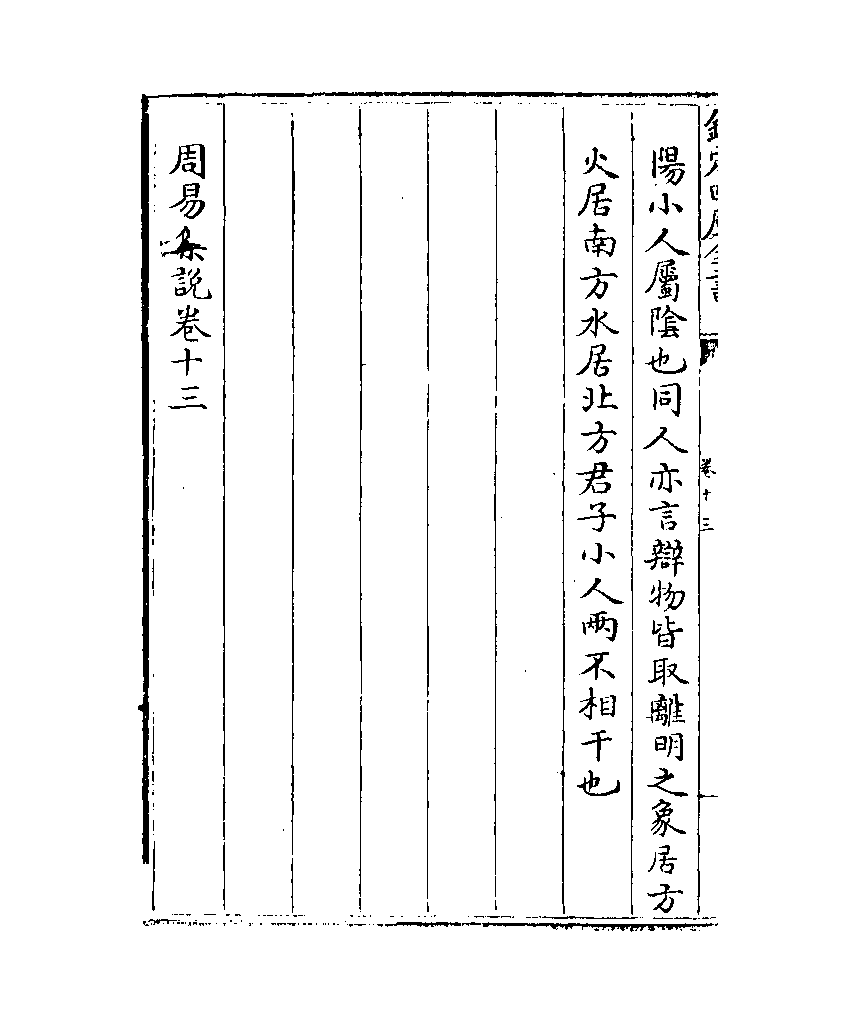 欽定四庫全書
卷十三
陽小人屬陰也同人亦言辯物皆取離明之象居方
火居南方水居北方君子小人兩不相干也
周易集説卷十三